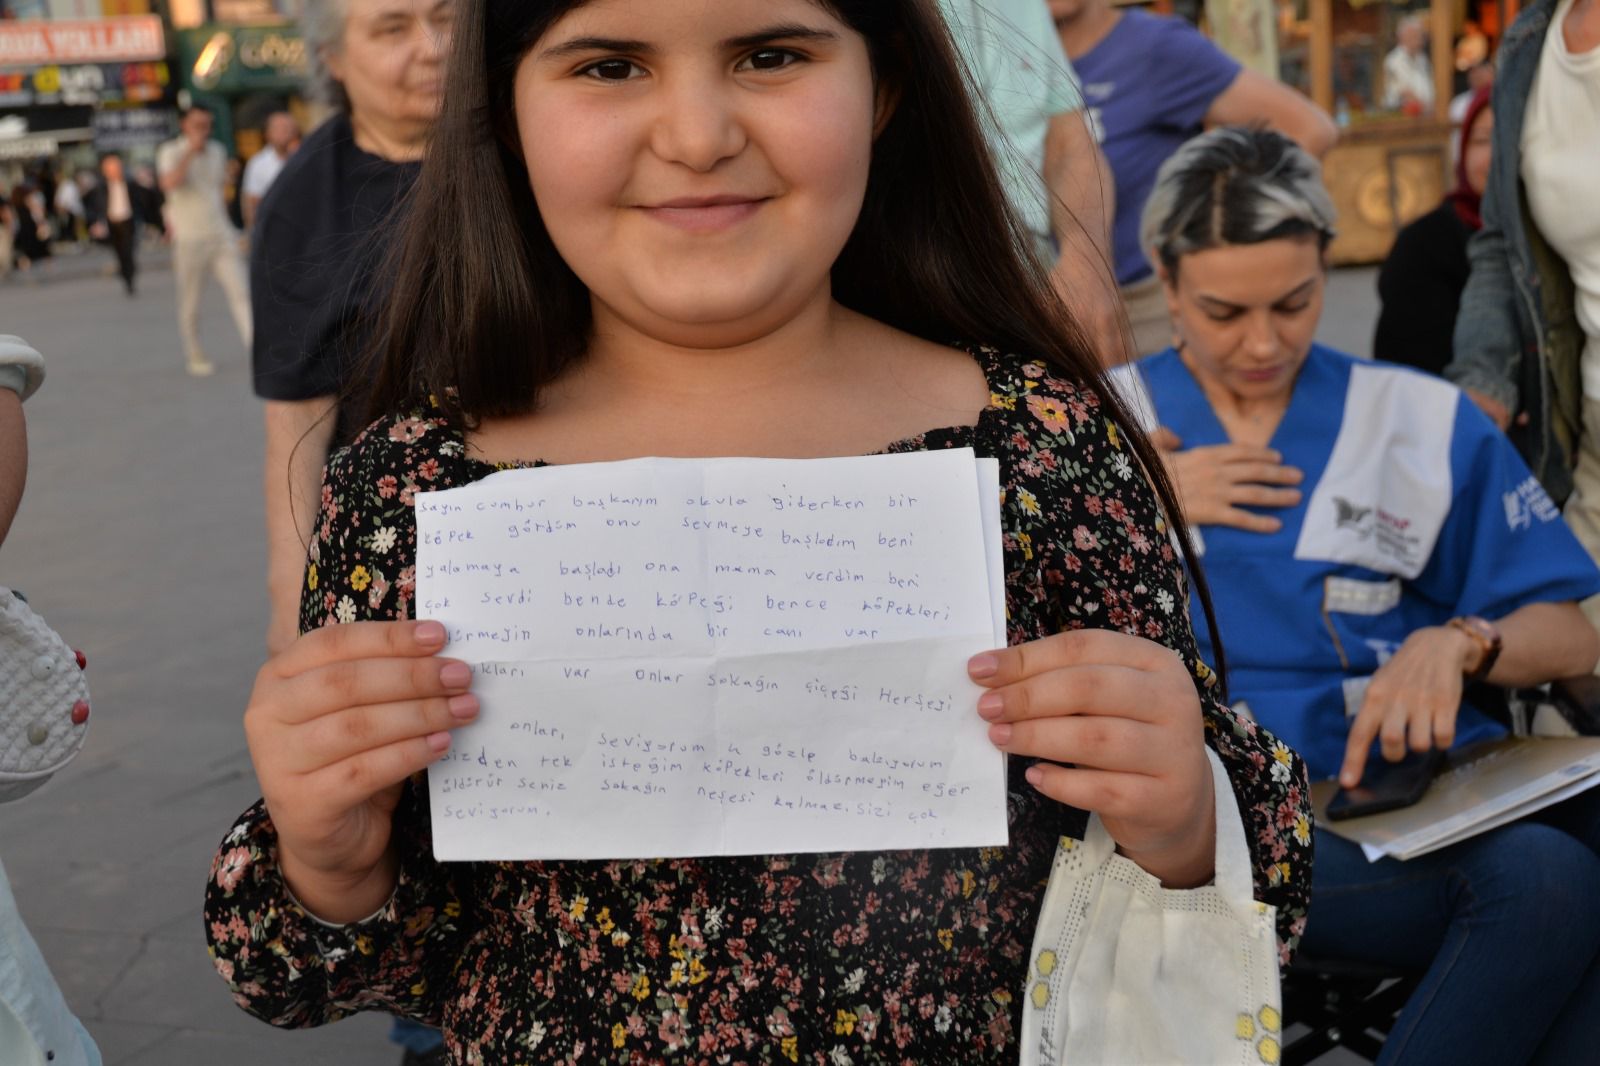 AVA YOLLARI
sayın cumhur başkanım okula giderken bir
köpek gördüm onu sevmeye başladım beni
yalamaya başladı ona mama verdim beni
çok sevdi bende köpeği bence köpekleri
onlarında bir canı var
var onlar sokağın çiçeği Herşeyi
onları seviyorum gözle bakıyorum
sizden tek isteğim köpekleri öldürmeyim eğer
öldürür seniz sokağın neşesi kalmaz. sizi çok
seviyorum.